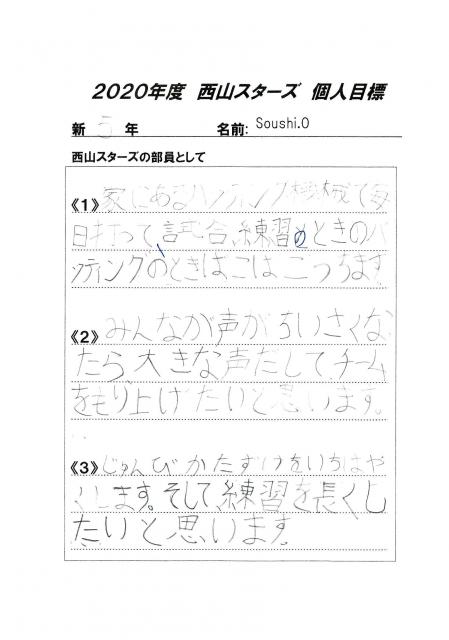 2020年度 西山スターズ 個人目標
新 5 年 名前: Soushi.O
西山スターズの部員として
《1》家にあるバッティング機械で毎
日打って、試合、練習のときのバ
ッティングのときは
《2》みんなが声がちいさくな
たら大きな声だして、チーム
をもり上げたいと思います。
《3》じゅんびかたずけをいちはや
くします。そして、練習を長くし
たいと思います。